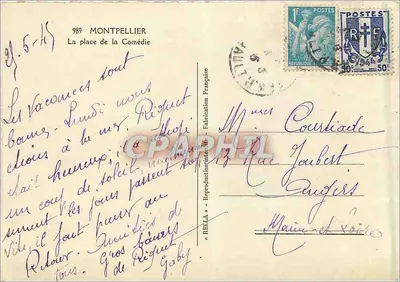 989 MONTPELLIER
La place de la Comédie
Les vacances sont
bonnes. Lundi nous
étions à la mer Riquet
était heureux, il a
un coup de soleil
les jours passent
vite, il faut penser au
Retour. Amitiés de
tous. Gros baisers
de Riquet
Gaby.
« RELLA » - Reproduction Fabrication Française
1F
POSTES
R F
50c
Mmes Courtiade
13 Rue Joubert
Angers
Maine et Loire
CPHARTP